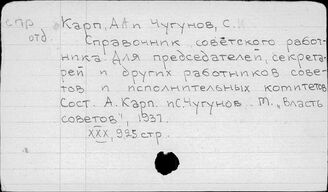 спр отд.
Карп, А. А и Чугунов, С.
Справочник советского работ-
ника. Для председателей, секрета-
рей и других работников сове-
тов и исполнительных комитетов
Сост. А. Карп. и С. Чугунов. М., „Власть
советов", 1937.
XXX, 925 стр.